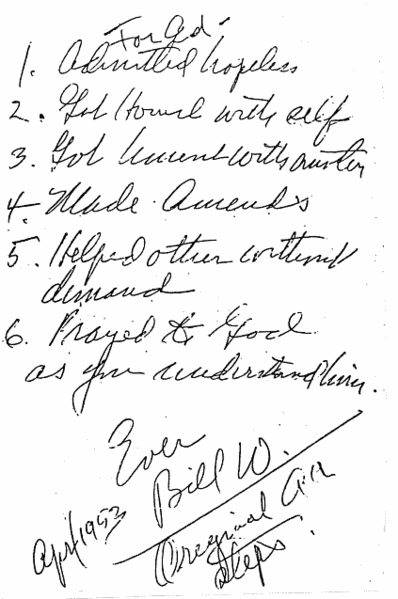 For Ed-
1. Admitted hopeless
2. Got honest with self
3. Got honest with another
4. Made Amends
5. Helped other without
demand
6. Prayed to God
as you understand him.
Ever
Bill W.
Apr/1953
Original AA
Steps.